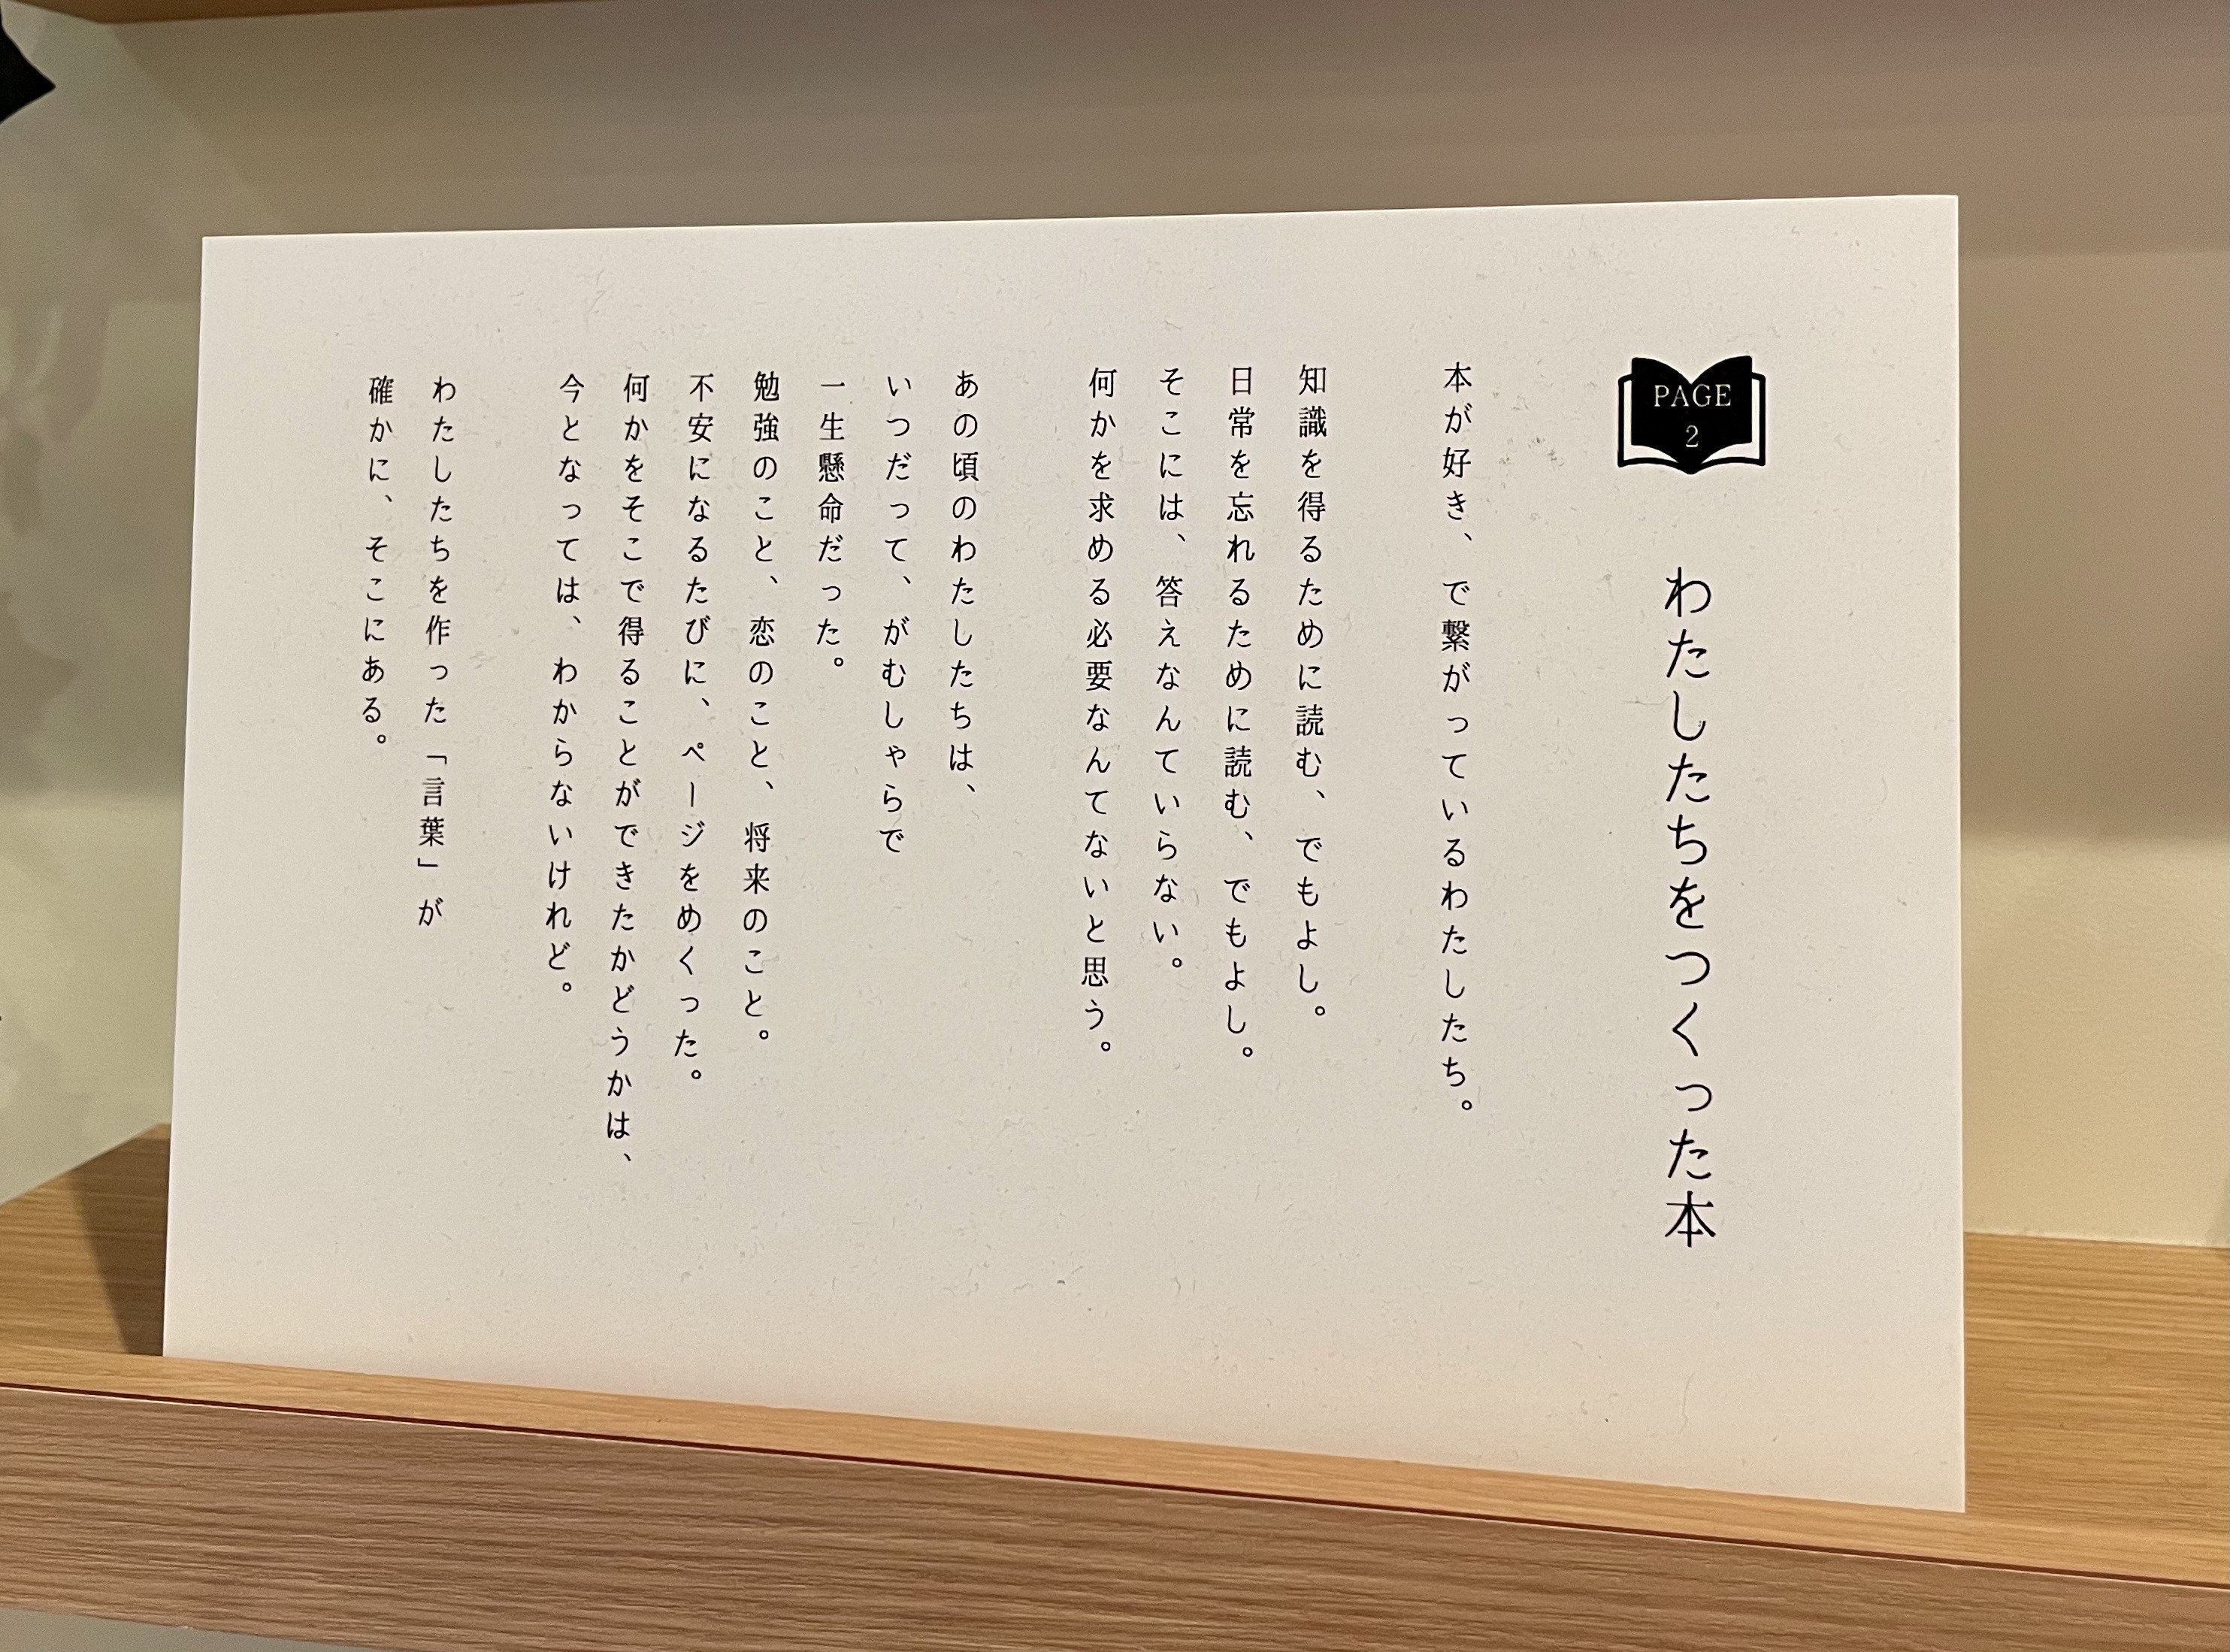 PAGE
2
わたしたちをつくった本
本が好き、で繋がっているわたしたち。
知識を得るために読む、でもよし。
日常を忘れるために読む、でもよし。
そこには、答えなんていらない。
何かを求める必要なんてないと思う。
あの頃のわたしたちは、
いつだって、がむしゃらで
一生懸命だった。
勉強のこと、恋のこと、将来のこと。
不安になるたびに、ページをめくった。
何かをそこで得ることができたかどうかは、
今となっては、わからないけれど。
わたしたちを作った「言葉」が
確かに、そこにある。